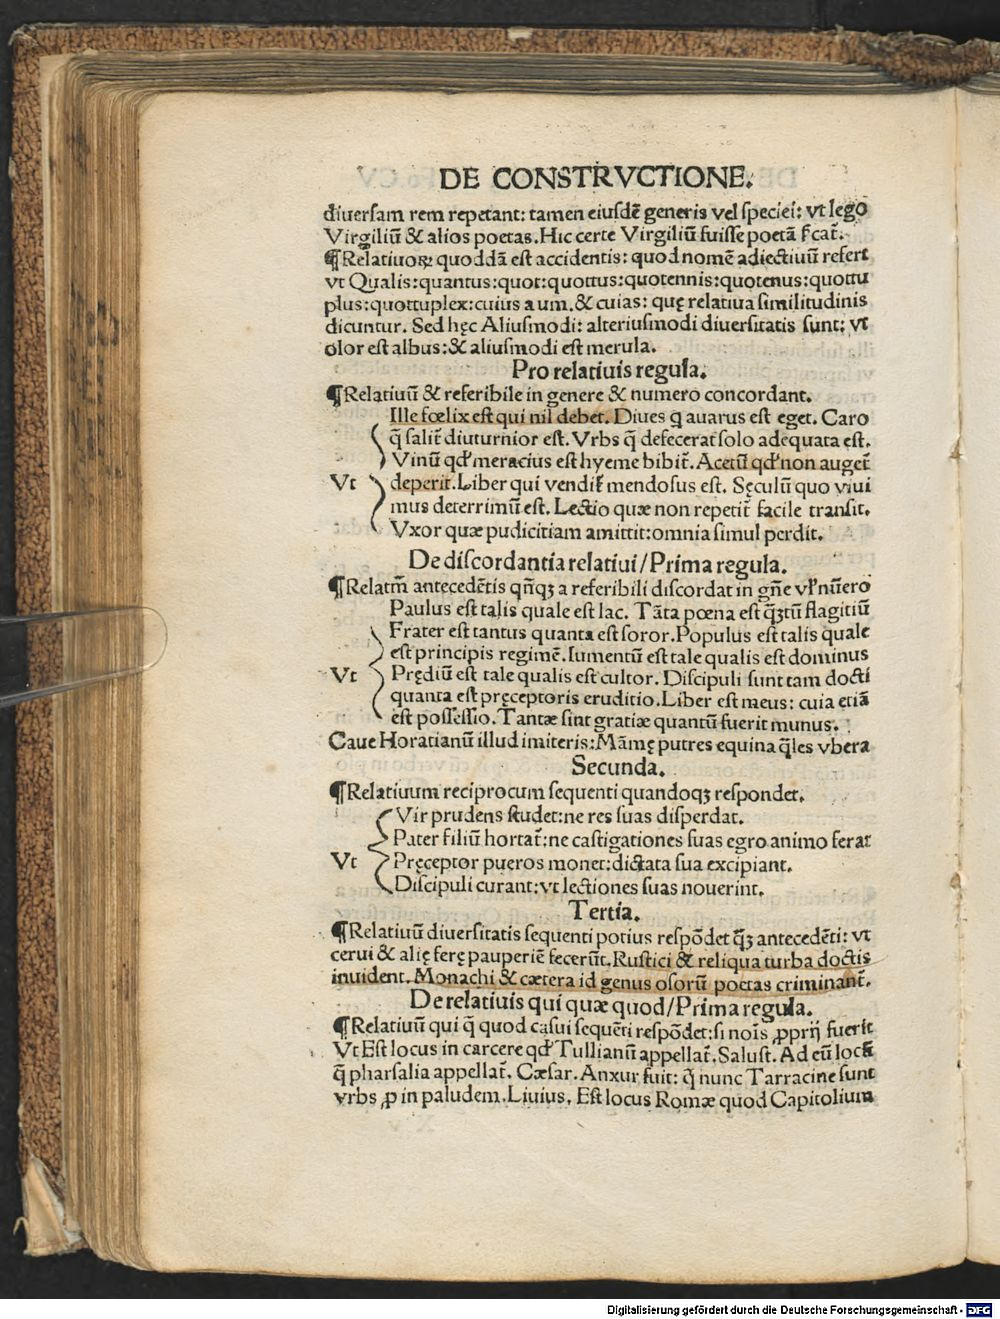 DE CONSTRVCTIONE.
diuersam rem repetant: tamen eiusdē generis vel speciei: vt lego
Virgiliū & alios poetas. Hic certe Virgiliū fuisse poetā
¶Relatiuoꝝ quoddā est accidentis: quod nomē adiectiuū refert
vt Qualis: quantus: quot: quottus: quotennis: quotenus: quottu
plus: quottuplex: cuius a um. & cuias: quę relatiua similitudinis
dicuntur. Sed hęc Aliusmodi: alteriusmodi diuersitatis sunt: vt
olor est albus: & aliusmodi est merula.
Pro relatiuis regula.
¶Relatiuū & referibile in genere & numero concordant.
Ille fœlix est qui nil debet. Diues q auarus est eget. Caro
q̄ salit̄ diuturnior est. Vrbs q̄ defecerat solo adequata est.
Vinū qđ meracius est hyeme bibit̄. Acetū qđ non auget̄
Vt deperit. Liber qui vendit̄ mendosus est. Sęculū quo viui
mus deterrimū est. Lectio quæ non repetit̄ facile transit.
Vxor quæ pudicitiam amittit: omnia simul perdit.
De discordantia relatiui/Prima regula.
¶Relatm̄ antecedētis qn̄qꝫ a referibili discordat in gn̄e vl̄ nūero
Paulus est talis quale est lac. Tāta pœna est q̄ꝫtū flagitiū
Frater est tantus quanta est soror. Populus est talis quale
est principis regimē. Iumentū est tale qualis est dominus
Vt Prędiū est tale qualis est cultor. Discipuli sunt tam docti
quanta est pręceptoris eruditio. Liber est meus: cuia etiā
est possessio. Tantæ sint gratiæ quantū fuerit munus.
Caue Horatianū illud imiteris: Māmę putres equina q̄les vbera
Secunda.
¶Relatiuum reciprocum sequenti quandoqꝫ respondet.
Vir prudens studet: ne res suas disperdat.
Pater filiū hortat̄: ne castigationes suas egro animo ferat
Vt Pręceptor pueros monet: dictata sua excipiant.
Discipuli curant: vt lectiones suas nouerint.
Tertia.
¶Relatiuū diuersitatis sequenti potius respōdet q̄ꝫ antecedēti: vt
cerui & alię ferę pauperiē fecerūt. Rustici & reliqua turba doctis
inuident. Monachi & cætera id genus osorū poetas criminant̄.
De relatiuis qui quæ quod/Prima regula.
¶Relatiuū qui q̄ quod casui sequēti respōdet: si nois̄ ꝓprij fuerit
Vt Est locus in carcere qđ Tullianū appellat̄. Salust. Ad eū locū
q̄ pharsalia appellat̄. Cæsar. Anxur fuit: q̄ nunc Tarracine sunt
vrbs ꝓ in paludem. Liuius. Est locus Romæ quod Capitolium
Digitalisierung gefördert durch die Deutsche Forschungsgemeinschaft - DFG